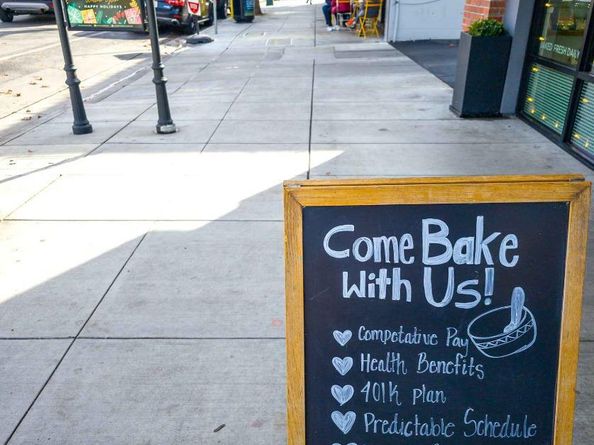 HAPPY HOLIDAYS
BAKED FRESH DAILY
Come Bake
With Us!
Competative Pay
Health Benefits
401K plan
Predictable Schedule